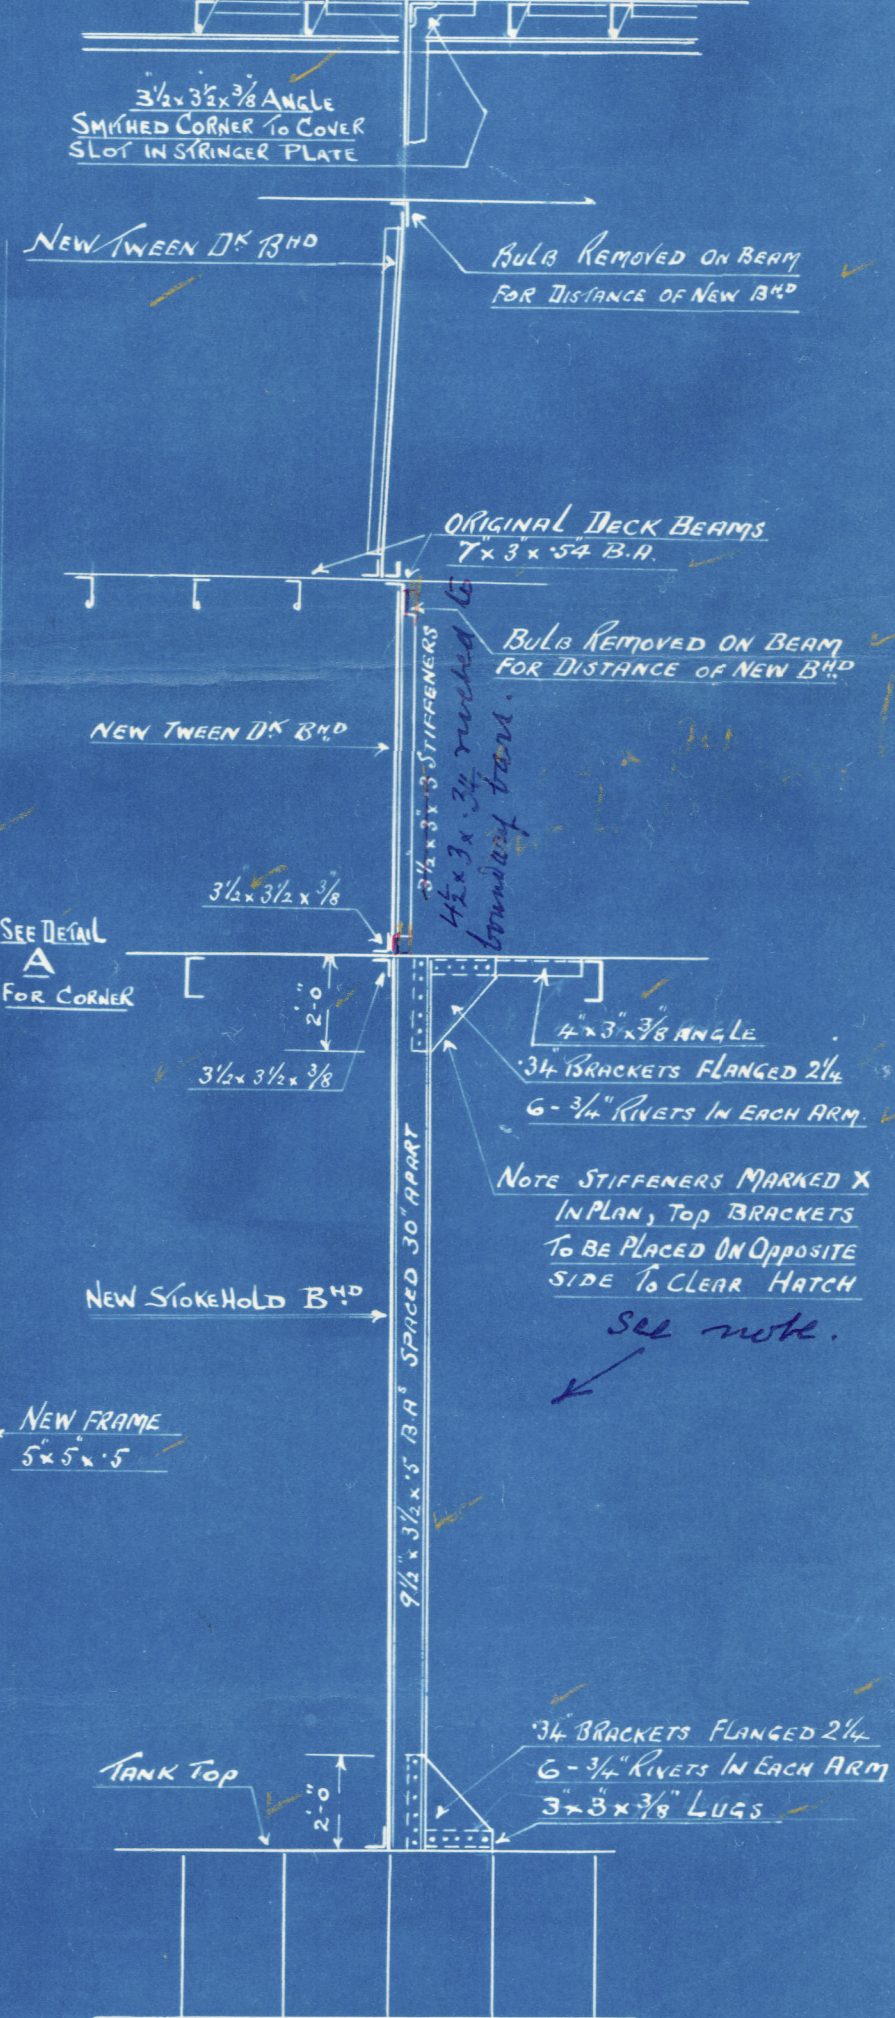 3½ x 3½ x ⅜ ANGLE
SMITHED CORNER TO COVER
SLOT IN STRINGER PLATE
NEW TWEEN DK BHD
BULB REMOVED ON BEAM
FOR DISTANCE OF NEW BHD
ORIGINAL DECK BEAMS
7" x 3" x .54 B.A.
BULB REMOVED ON BEAM
FOR DISTANCE OF NEW BHD
NEW TWEEN DK BHD
3½" x 3" x 3 STIFFENERS
4½ x 3 x .34" riveted to
boundary bars.
3½ x 3½ x ⅜
SEE DETAIL
A
FOR CORNER
2'-0"
3½ x 3½ x ⅜
4" x 3" x ⅜ ANGLE
.34" BRACKETS FLANGED 2¼
6 - ¾" RIVETS IN EACH ARM.
NOTE STIFFENERS MARKED X
IN PLAN, TOP BRACKETS
TO BE PLACED ON OPPOSITE
SIDE TO CLEAR HATCH
See note.
NEW STOKEHOLD BHD
9½" x 3½ x .5 B.As SPACED 30" APART
NEW FRAME
5" x 5" x .5
TANK TOP
2'-0"
.34" BRACKETS FLANGED 2¼
6 - ¾" RIVETS IN EACH ARM
3" x 3" x ⅜" LUGS